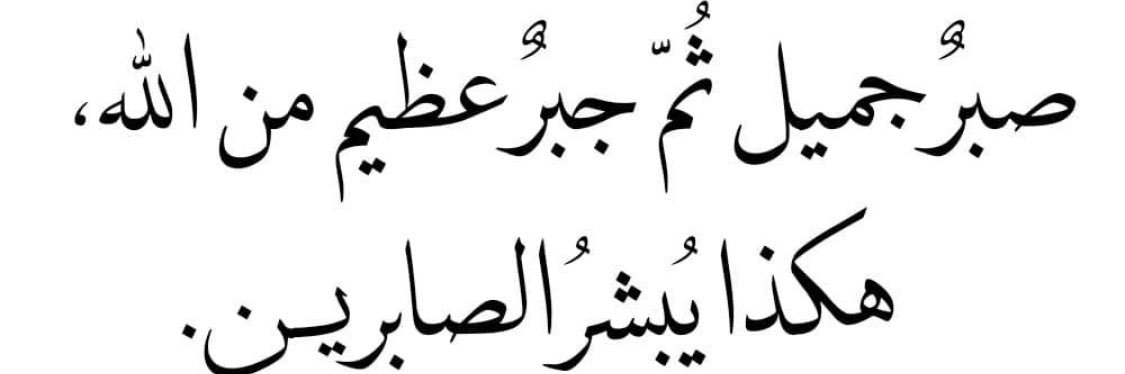 صبرٌ جميل ثُمّ جبرٌ عظيم من الله،
هكذا يُبشرُ الصابرين.